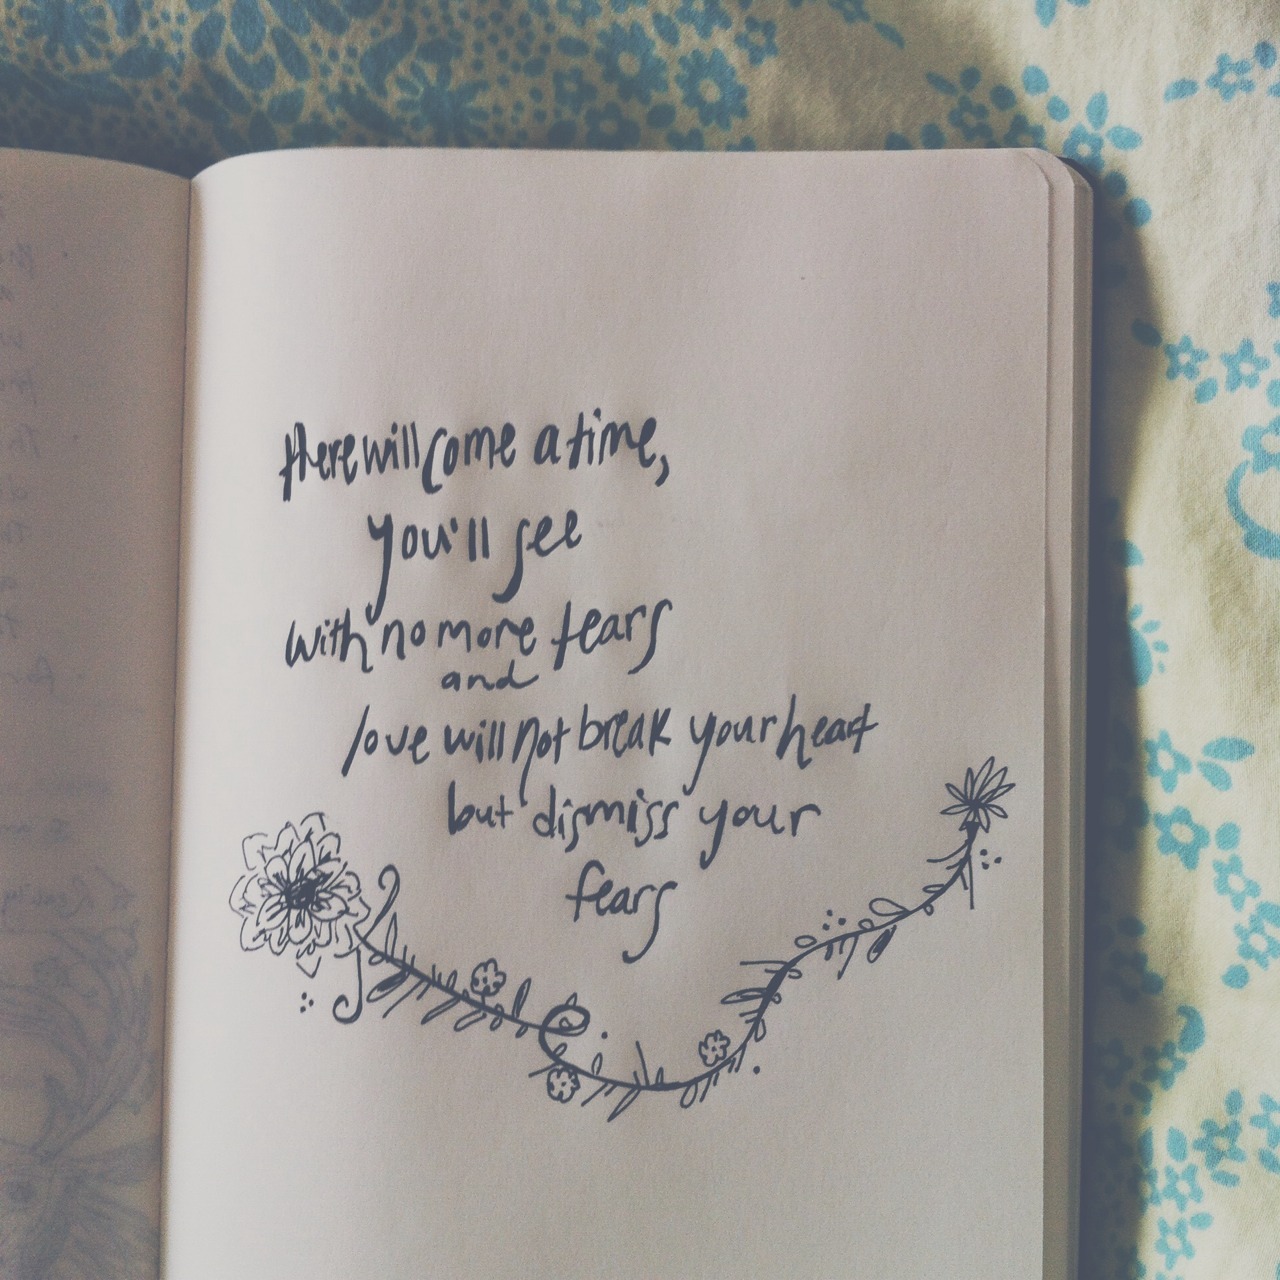 there will come a time,
you'll see
with no more tears
and
love will not break your heart
but dismiss your
fears